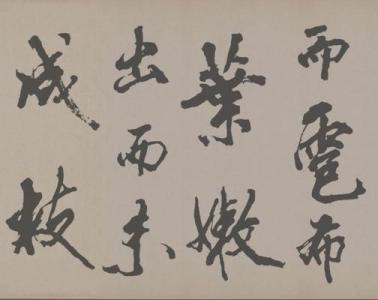 雨雹布
葉嫩
出而未
成枝